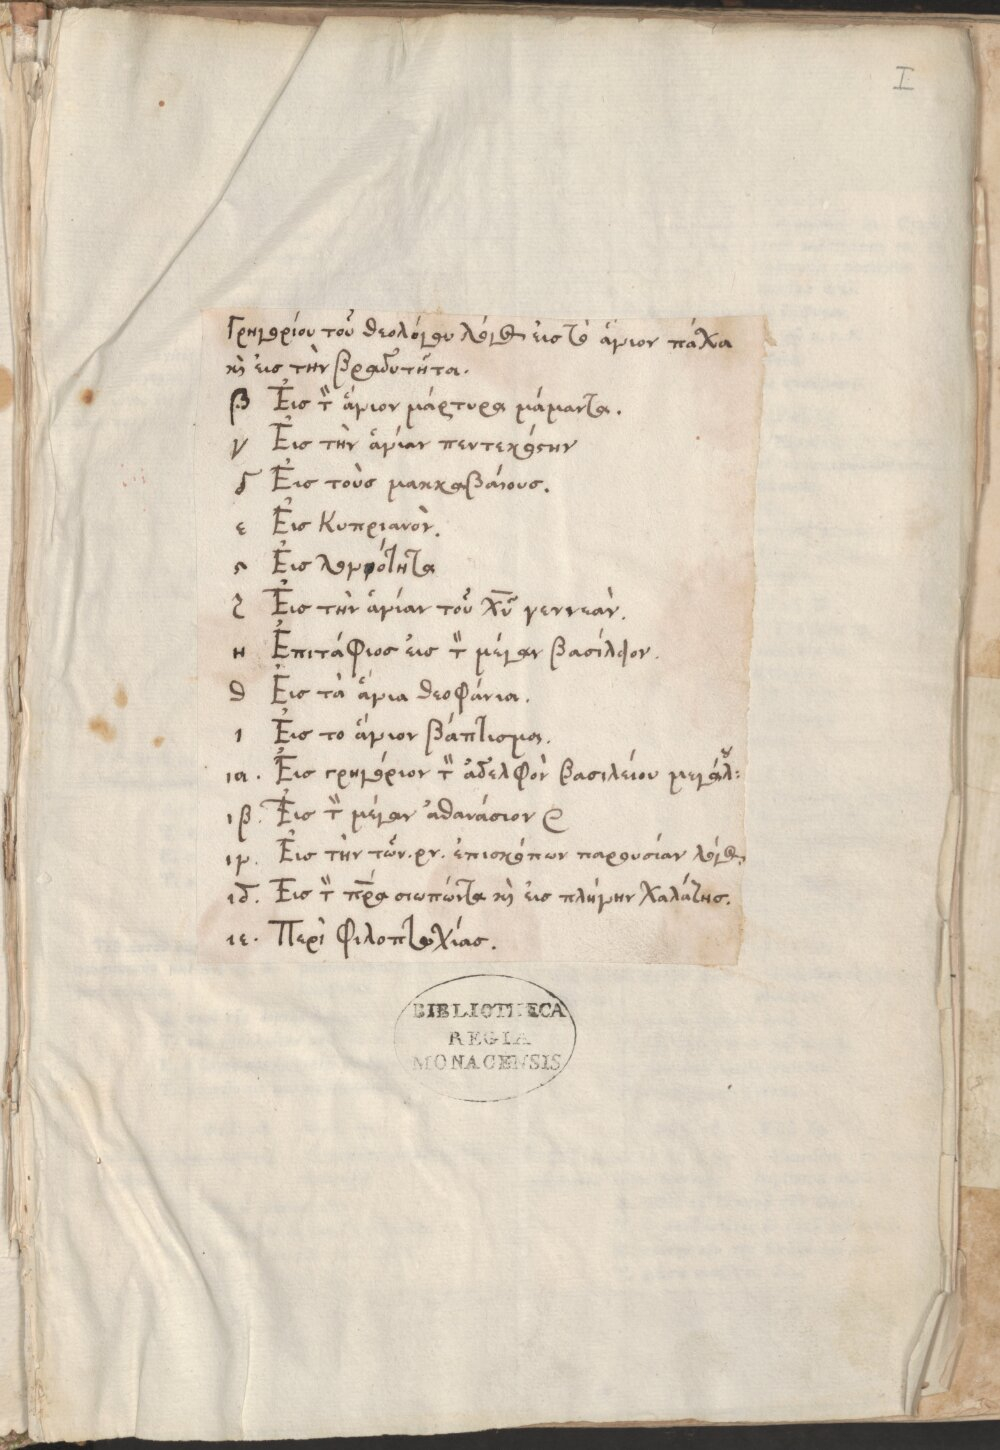 I
Γρηγορίου τοῦ θεολόγου λόγος εἰς τὸ ἅγιον πάσχα
κὶ εἰς τὴν βραδυτῆτα.
β Εἰς τ̃ ἅγιον μάρτυρα μάμαντα.
γ Εἰς τὴν ἁγίαν πεντεκόστην
δ Εἰς τοὺς μακκαβάιους.
ε Εἰς Κυπριανὸν.
ς Εἰς
ζ Εἰς τὴν ἁγίαν τοῦ χῦ γεννεὰν.
η Ἐπιτάφιος εἰς τ̃ μέγαν βασίλειον.
θ Εἰς τὰ ἅγια θεοφάνια.
ι Εἰς το ἅγιον βάπτισμα.
ια. Εἰς γρηγόριον τ̃ ἀδελφὸν βασιλείου
ιβ. Εἰς τ̃ μέγαν ἀθανάσιον
ιγ. Εἰς τὴν τῶν .ρν. ἐπισκόπων παρουσίαν λόγος
ιδ. Εἰς τ̃ πρ̅α σιωπῶντα κὶ εἰς πλήγην χαλάζης.
ιε. Περὶ φιλοπτωχίας.
BIBLIOTHECA
REGIA
MONACENSIS